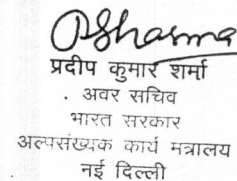 PSharma
प्रदीप कुमार शर्मा
. अवर सचिव
भारत सरकार
अल्पसंख्यक कार्य मंत्रालय
नई दिल्ली